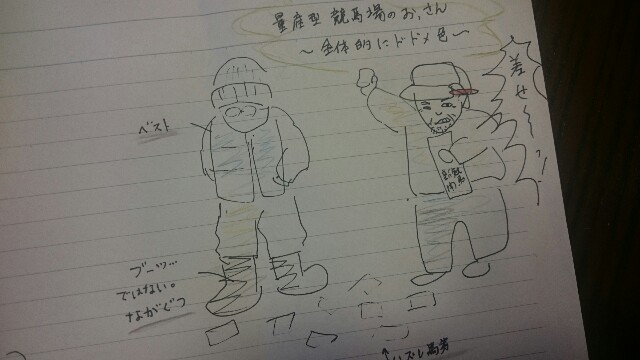 量産型 競馬場のおっさん
～全体的にドドメ色～
差せ～ッ!
ベスト
ブーツ…
ではない。
ながぐつ
↑ハズレ馬券